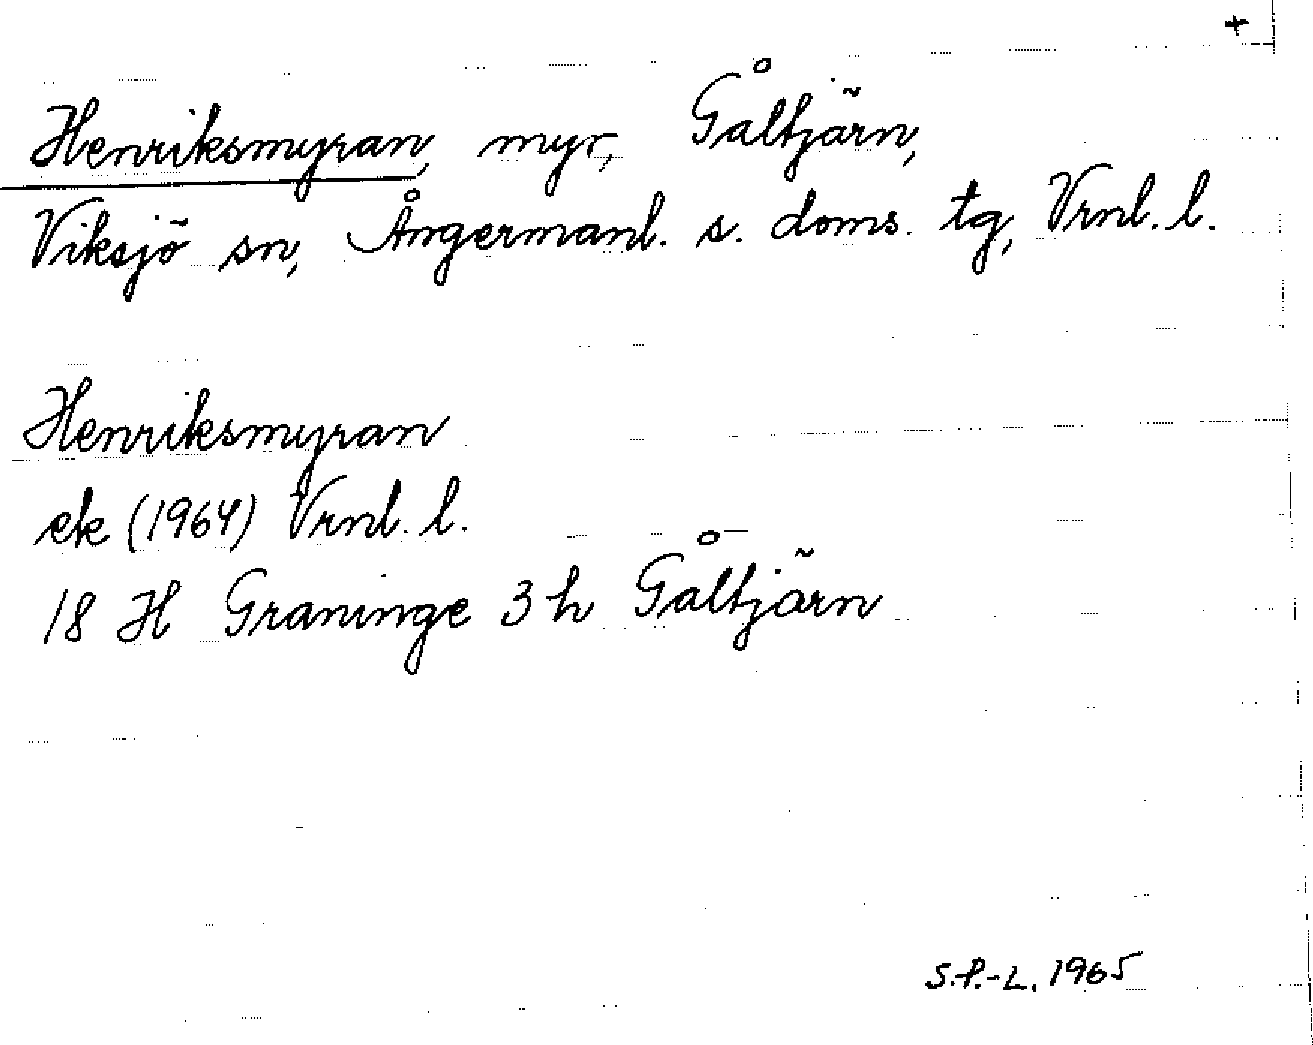 +
Henriksmyran, myr, Gåltjärn,
Viksjö sn, Ångermanl. s. doms. tg, Vrnl. l.
Henriksmyran
ek (1964) Vrnl. l.
18 H Graninge 3 h Gåltjärn
S.P.-L. 1965